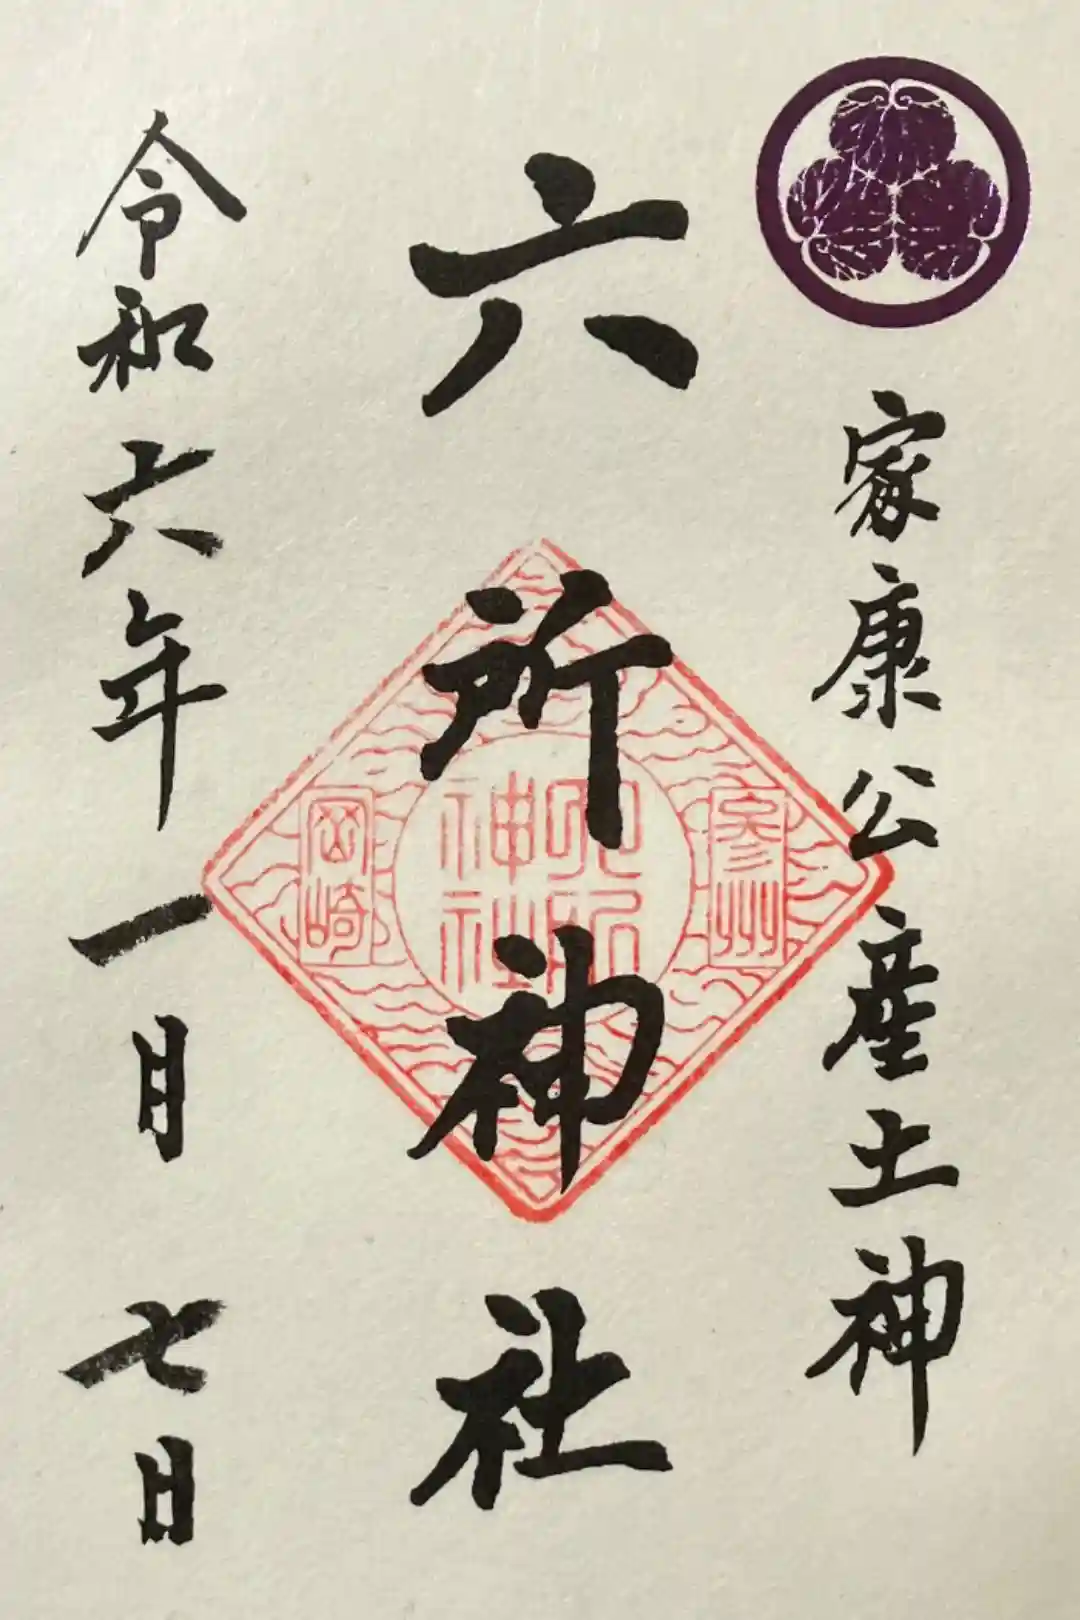 家康公産土神
六所神社
参州
六所神社
岡崎
令和六年一月七日